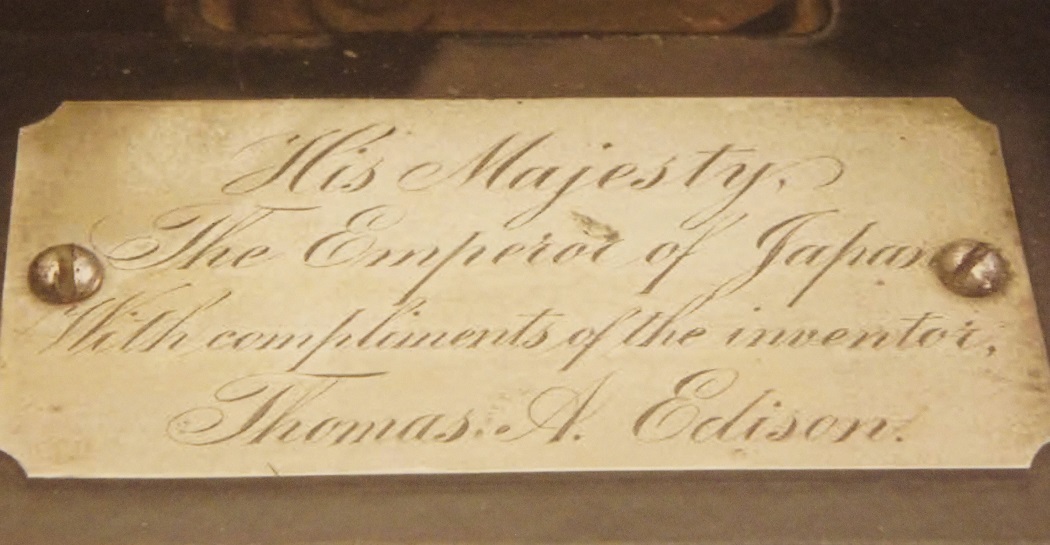 His Majesty,
The Emperor of Japan
With compliments of the inventor,
Thomas. A. Edison.